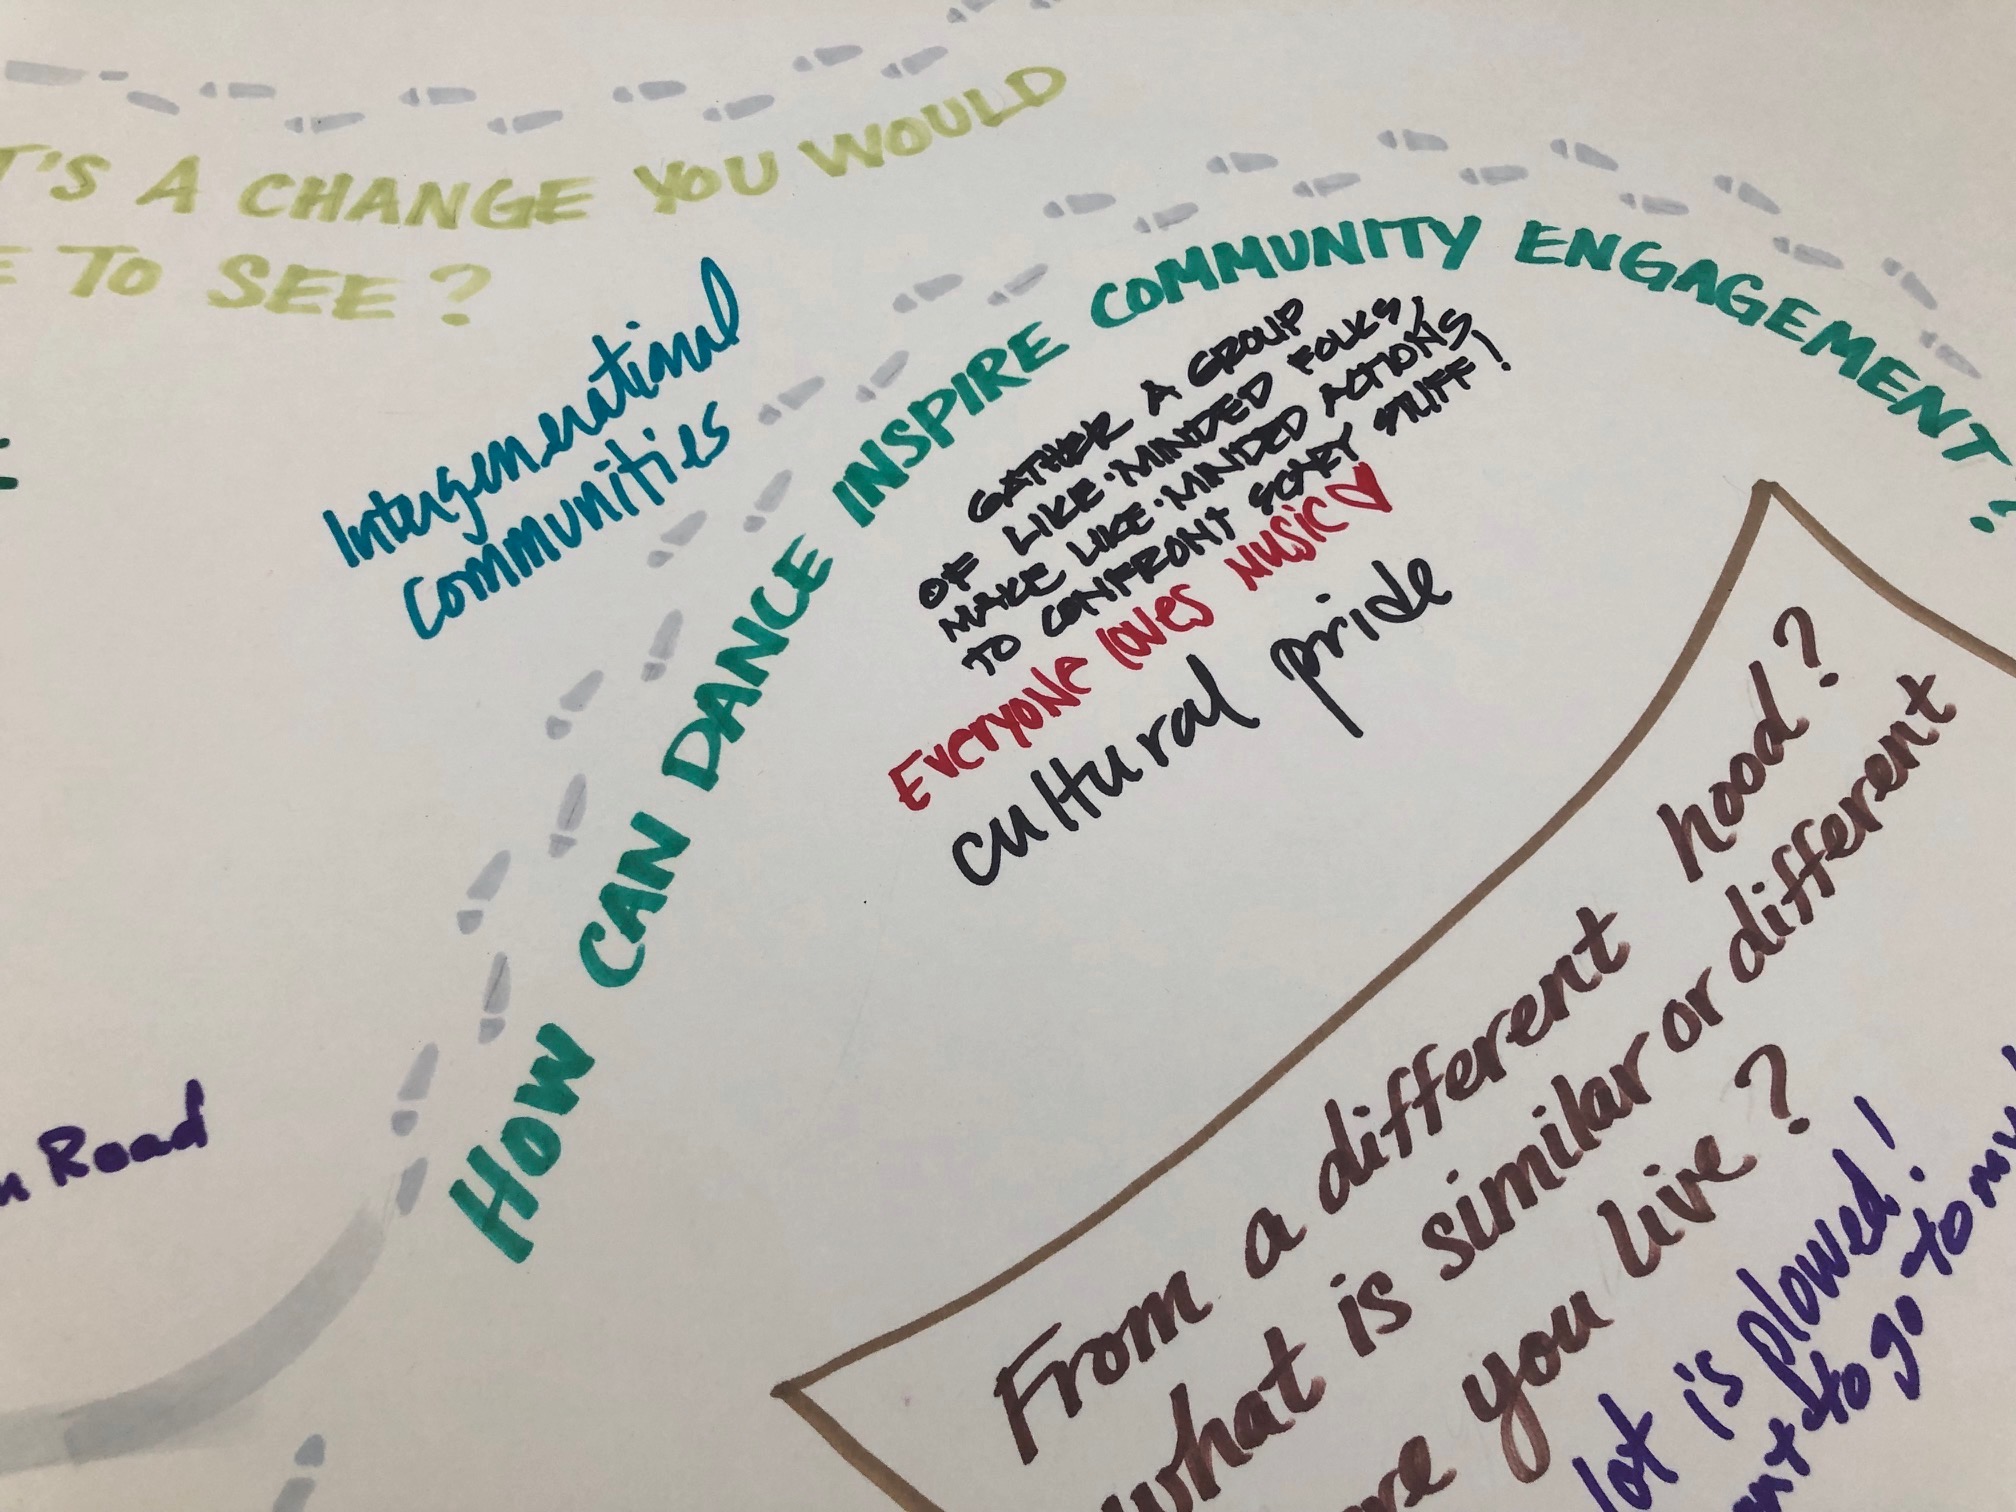 T'S A CHANGE YOU WOULD
E TO SEE?
Intergenerational
Communities
HOW CAN DANCE INSPIRE COMMUNITY ENGAGEMENT?
GATHER A GROUP
OF LIKE·MINDED FOLKS,
MAKE LIKE·MINDED ACTIONS,
TO CONFRONT SCARY STUFF!
EVERYONE LOVES MUSIC♡
cultural pride
Road
From a different hood?
what is similar or different
re you live?
lot is plowed!
to go to my